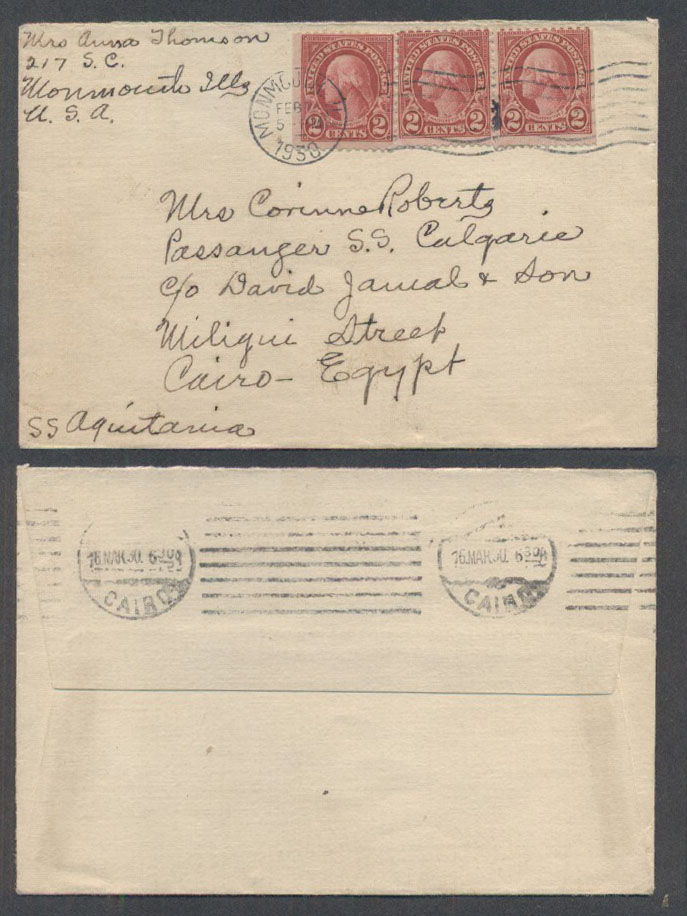 Mrs Anna Thomson
217 S. C.
Monmouth Ills
U. S. A.
UNITED STATES POSTAGE
2 CENTS 2
UNITED STATES POSTAGE
2 CENTS 2
UNITED STATES POSTAGE
2 CENTS 2
MONMOU
FEB
5
1930
Mrs Corinne Roberts
Passanger S.S. Calgaric
c/o David Jamal & Son
Miliqui Street
Cairo - Egypt
SS Aquitania
MAR.30. 6
CAIRO
MAR.30. 6
CAIRO